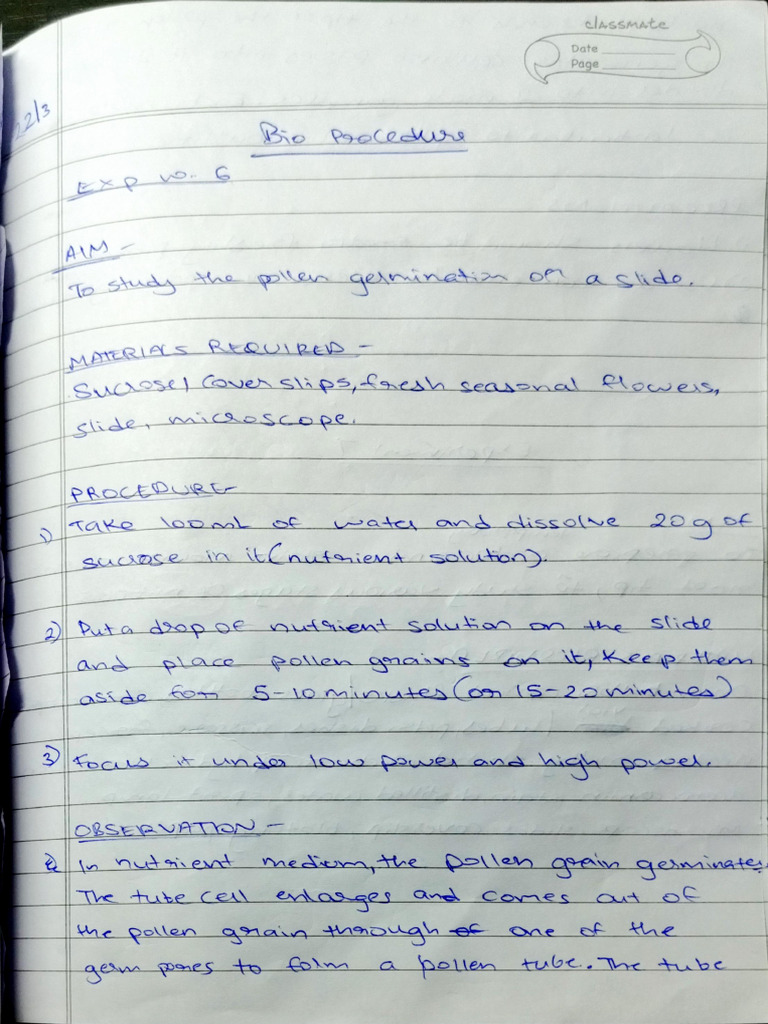 classmate
Date
Page
22/3
Bio Procedure
Exp no. 6
AIM -
To study the pollen germination on a slide.
MATERIALS REQUIRED -
Sucrose, Cover slips, fresh seasonal flowers,
slide, microscope.
PROCEDURE-
1) Take 100ml of water and dissolve 20g of
sucrose in it (nutrient solution).
2) Put a drop of nutrient solution on the slide
and place pollen grains on it, Keep them
aside for 5-10 minutes (or 15-20 minutes)
3) Focus it under low power and high power.
OBSERVATION -
In nutrient medium, the pollen grain germinates.
The tube cell enlarges and comes out of
the pollen grain through of one of the
germ pores to form a pollen tube. The tube